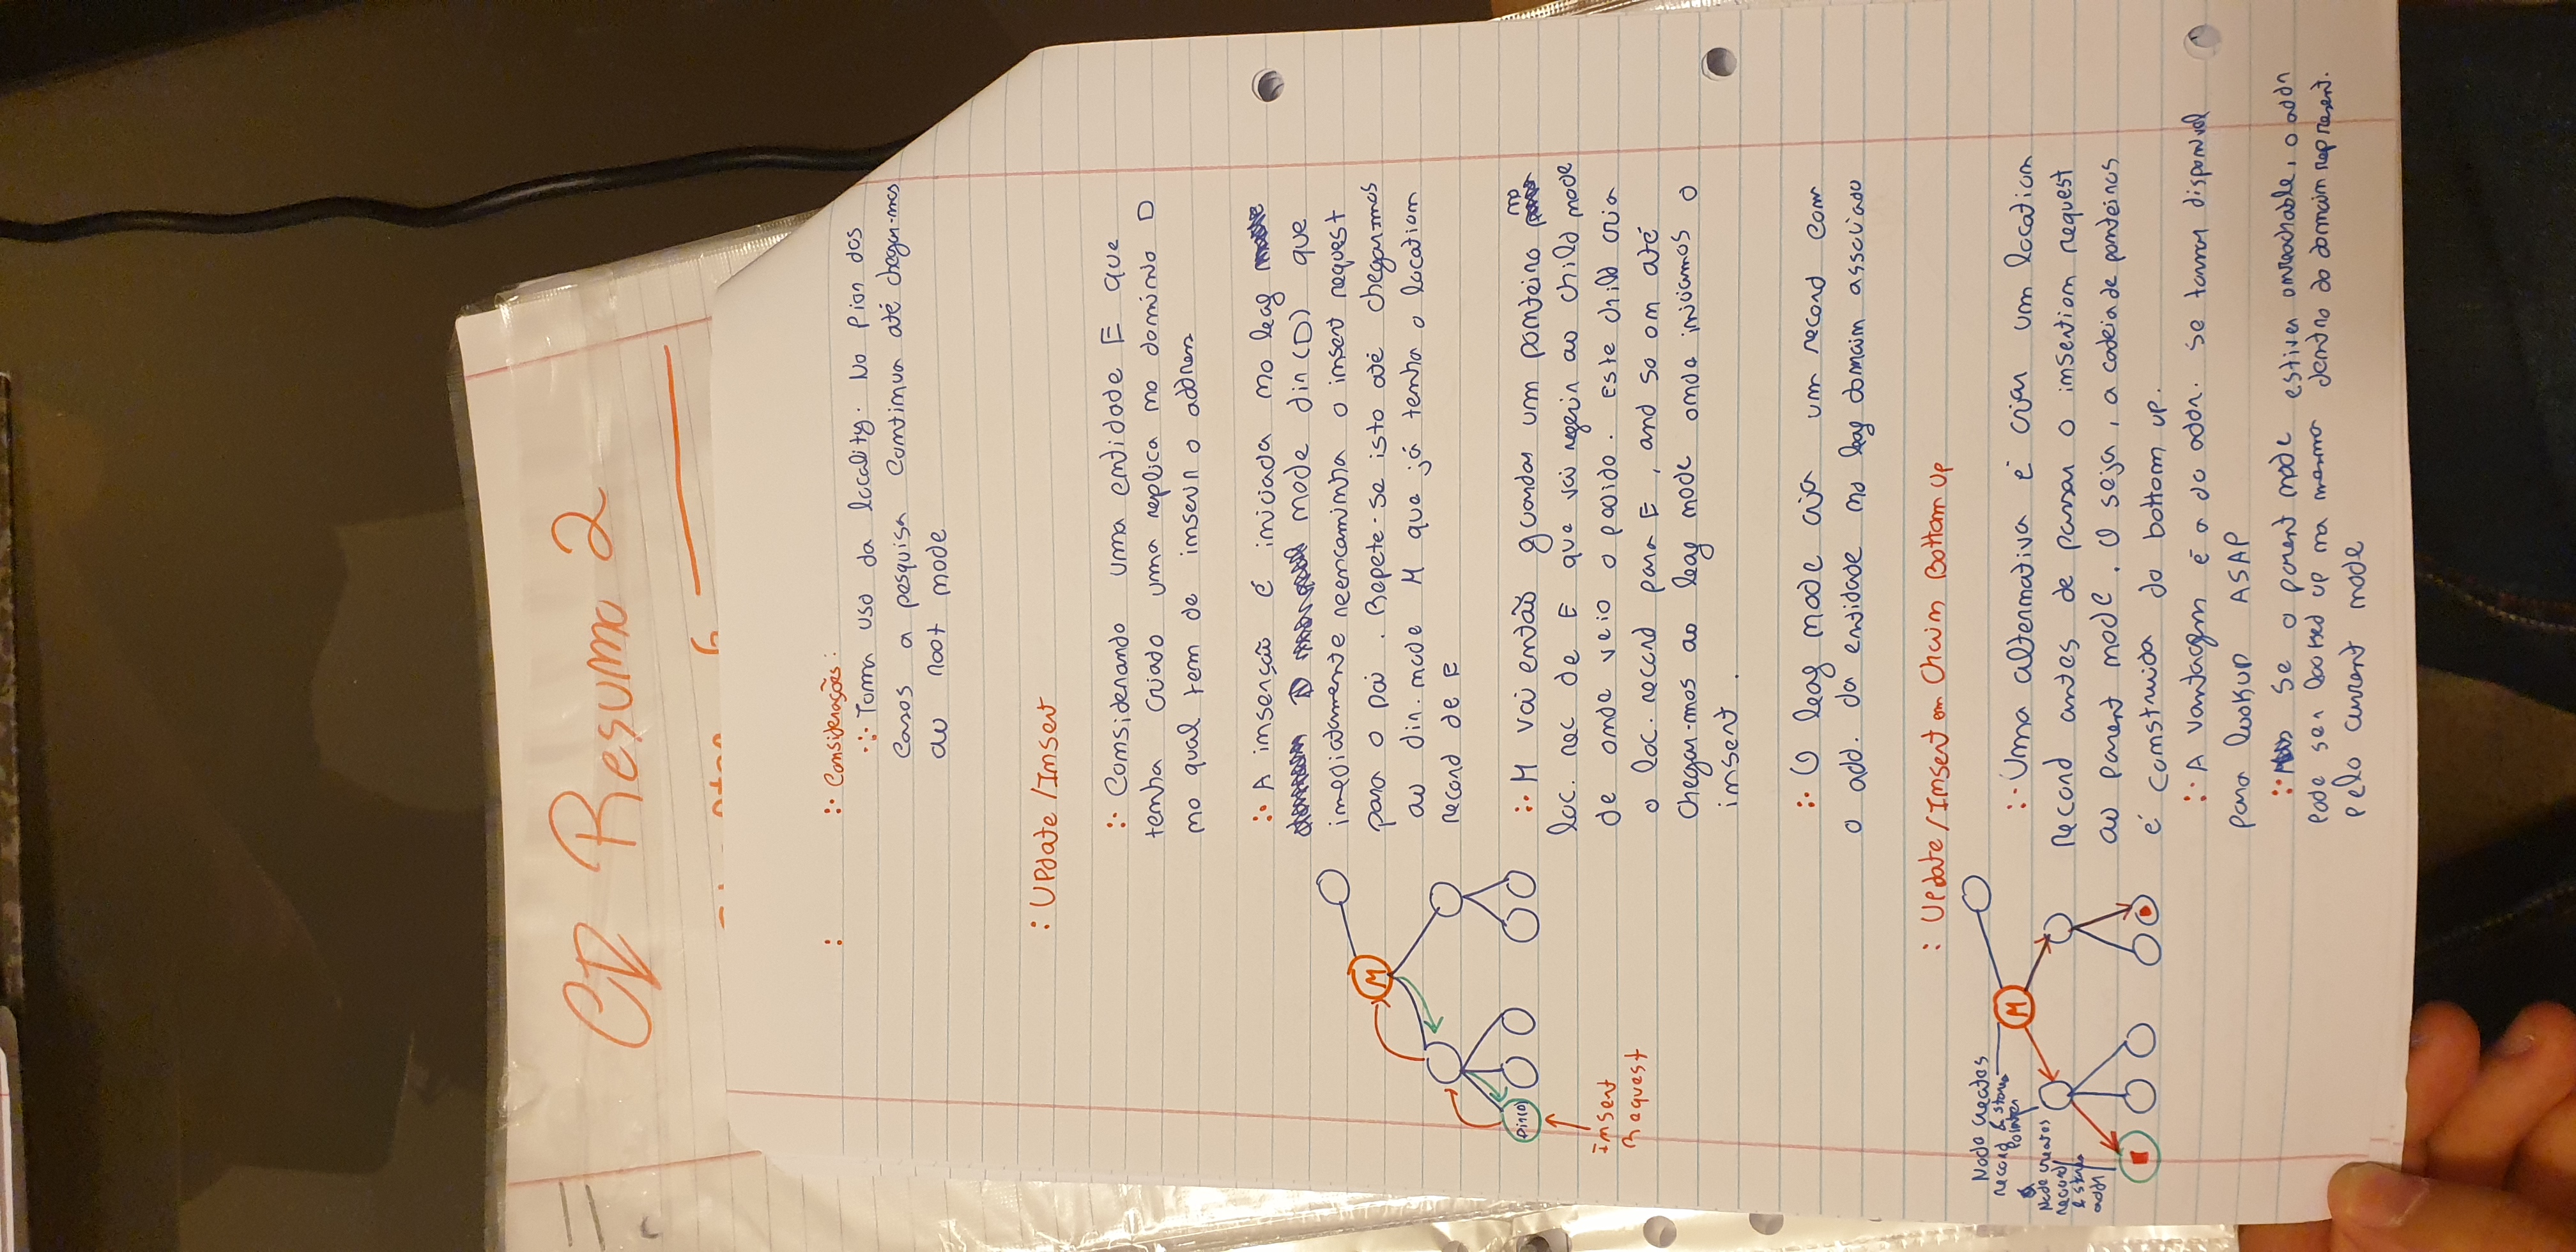 CD Resumo 2
:· Considerações:
·:· Torna uso da locality. No pior dos
casos a pesquisa continua até chegar-mos
ao root node
: Update/Insert
:· Considerando uma entidade E que
tenha criado uma replica no dominio D
no qual tem de inserir o address
:· A inserção é iniciada no leaf
node dir(D) que
imediatamente reencaminha o insert request
para o pai. Repete-se isto até chegar-mos
ao dir. node M que já tenha o location
record de E
:· M vai então guardar um ponteiro no
loc. rec de E que vai referir ao child node
de onde veio o pedido. Este child cria
o loc. record para E, and so on até
chegar-mos ao leaf node onde iniciamos o
insert.
:· O leaf node cria um record com
o add. da entidade no leaf domain associado
M
Dir(D)
Insert
Request
: Update/Insert on Chain Bottom Up
:· Uma alternativa é criar um location
record antes de passar o insertion request
ao parent node. O seja, a cadeia de ponteiros
é construida do bottom up.
:· A vantagem é a do addr. se tornar disponivel
para lookup ASAP
:· Se o parent node estiver unreachable, o addr
pode ser looked up na mesma dentro do domain represent.
pelo current node
Node creates
record & stores
Pointer
Node creates
record
& stores
addr
M